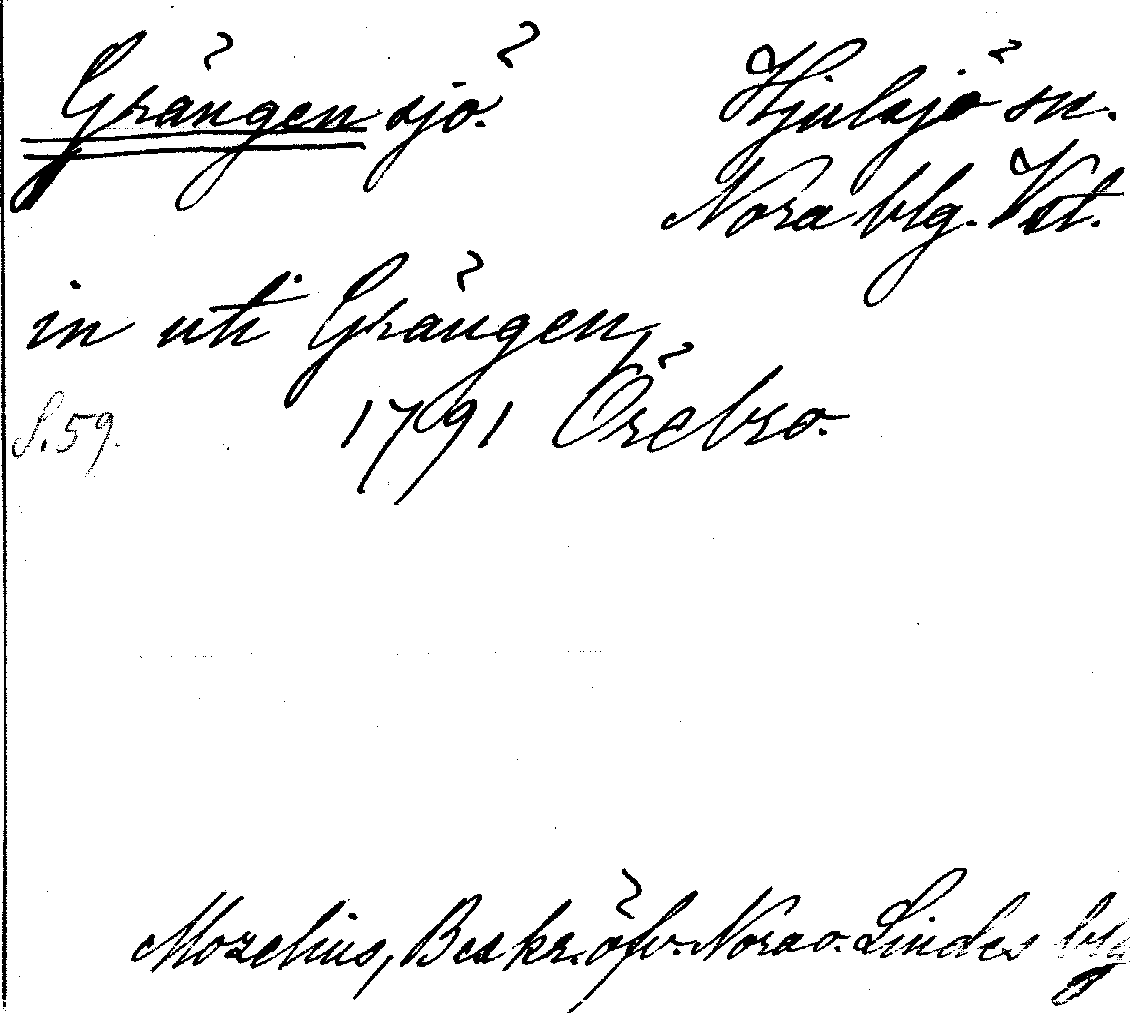 Grängen sjö. Hjulsjö sn.
Nora blg. Vstl.
in uti Grängen,
S. 59. 1791 Örebro.
Mozelius, Beskr. öfv. Nora o. Lindes blg